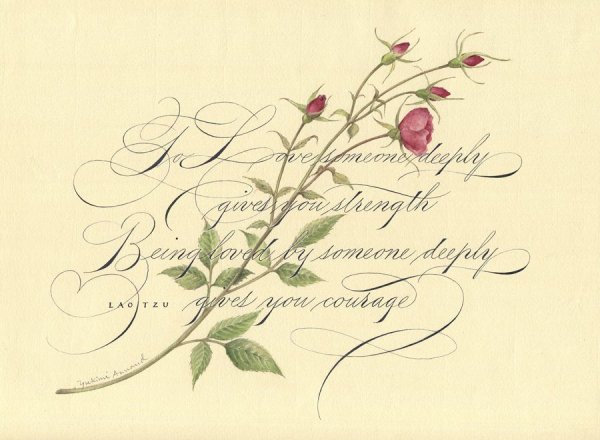 To Love someone deeply
gives you strength
Being loved by someone deeply
gives you courage
LAO TZU
Yukimi Annand